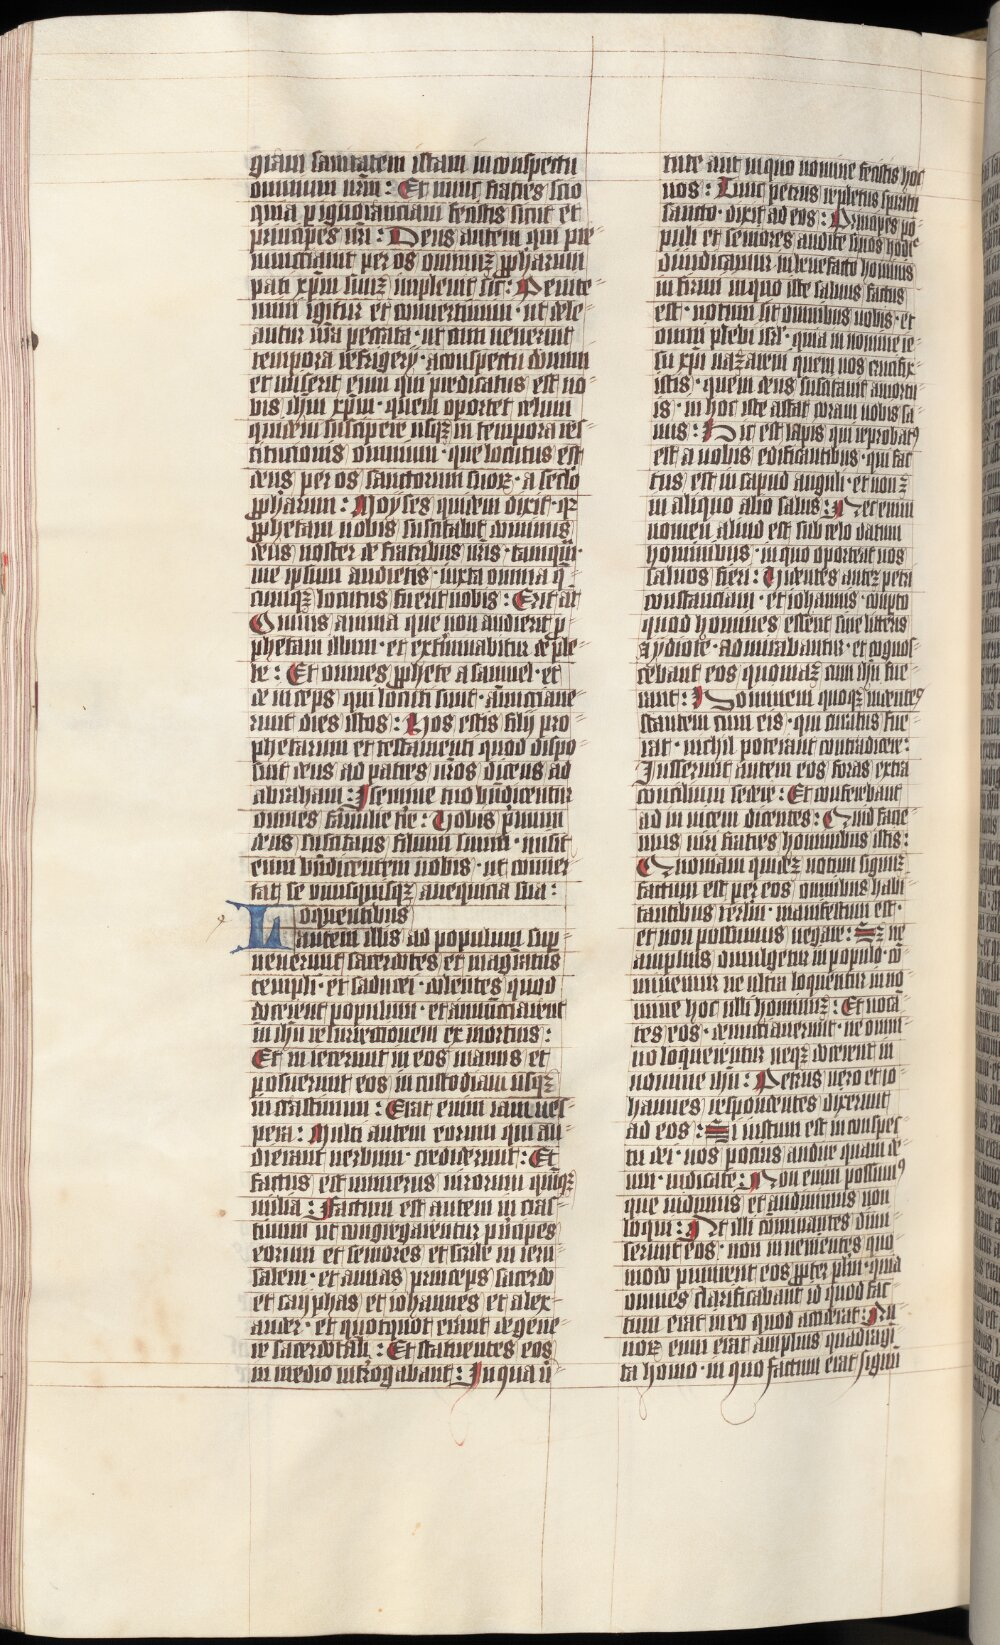 gram sanitatem istam in conspectu
omnium nr̄m : Et nunc fratres scio
quia p ignoranciam fecistis sicut et
principes nri : Deus autem qui pre
nunciauit per os omniuꝫ ꝓpharum
pati xp̄m suuꝫ impleuit sic : Penite
mini igitur et conuertimini · ut dele
antur vr̄a peccata · ut cum uenerint
tempora refrigerij · aconspectu domini
et miserit eum qui predicatus est uo
bis ih̄m xp̄m · quem oportet celum
quidem suscipere usqꝫ in tempora res
titucionis omnium · que locutus est
deus per os sanctorum suoꝝ · a seclo
ꝓpharum : Moyses quidem dixit · qꝛ
ꝓphetam uobis suscitabit dominus
deus uoster de fratribus uris · tamqm̄ ·
me ipsum audietis · iuxta omnia q̄
cumqꝫ locutus fuerit uobis : Erit at̄
Omnis anima que non audierit p̄
phetam illum · et exterminabitur de ple
be : Et omnes ꝓphete a samuel · et
de inceps qui locuti sunt · an̄unciaue
runt dies istos : Uos estis filij pro
phetarum et testamenti quod dispo
suit deus ad patres nr̄os dicens ad
abraham : I semine tuo bn̄dicentur
omnes familie tr̄e : Uobis p̄mum
deus suscitans filium suum · misit
eum bn̄dicentem uobis · ut conuer
tat se unusquisqꝫ anequicia sua :
Loquentibus
autem illis ad populum sup̄
uenerunt sacerdotes et magr̄atus
templi · et saducei · dolentes quod
docerent populum · et annūciarent
in ih̄u resurrectionem ex mortuis :
Et in iecerunt in eos manus et
posuerunt eos in custodiam usqꝫ
in crastinum : Erat enim iam ues
pera : Multi autem eorum qui au
dierant uerbum · crediderunt : Et
factus est numerus uirorum quīqꝫ
milia : Factum est autem in cras
tinum ut congregarentur p̄ncipes
eorum et seniores et scribe in ieru
salem · et annas princeps sacerdo
et cayphas et iohannes et alex
ander · et quotquot erant de gene
re sacerdotali : Et statuentes eos
in medio int̄rogabant : In qua ū
tute aut in quo nomine fecistis hoc
uos : Tunc petrus repletus spiritu
sancto · dixit ad eos : Principes po
puli et seniores audite si nos hodie
diiudicamur in benefacto hominis
in firmi in quo iste saluus factus
est · notum sit omnibus uobis · et
omni plebi isrl̄ · quia in nomine ie
su xp̄i nazareni quem uos crucifix
istis · quem deus suscitauit amortu
is · in hoc iste astat coram uobis sa
nus : Hic est lapis qui reprobatꝰ
est a uobis edificantibus · qui fac
tus est in caput anguli · et non ē
in aliquo alio salus : Nec enim
nomen aliud est sub celo datum
hominibus · in quo oporteat nos
saluos fieri : Uidentes auteꝫ petri
constanciam · et iohannis · conꝑto
quod homines essent sine litteris
& ydiote · admirabantur · et cognos
cebant eos quoniaꝫ cum ih̄u fue
runt : Hominem quoqꝫ uidentes
stantem cum eis · qui curatus fue
rat · nichil poterant contradicere :
Iusserunt autem eos foras extra
concilium secere : Et conferebant
ad in uicem dicentes : Quid facie
mus uiri fratres hominibus istis :
Quoniam quideꝫ notum signuꝫ
factum est per eos omnibus habi
tantibus ierl̄m · manifestum est ·
et non possumus negare : Sꝫ ne
amplius diuulgetur in populo · cō
minemur ne ultra loquentur in no
mine hoc ulli hominuꝫ : Et uocā
tes eos · denunciauerunt · ne omni
no loquerentur neqꝫ docerent in
nomine ih̄u : Petrus uero et io
hannes respondentes dixerunt
ad eos : Si iustum est in conspec
tu dei · uos pocius audire quam de
um · iudicate : Non enim possumꝰ
que uidimus et audiuimus non
loqui : At illi cōminantes dimi
serunt eos · non in uenientes quo
modo punirent eos ꝓpter plm̄ · quia
omnes clarificabant id quod fac
tum erat in eo quod acciderat : An
noꝝ enim erat amplius quadragi
ta homo · in quo factum erat signū